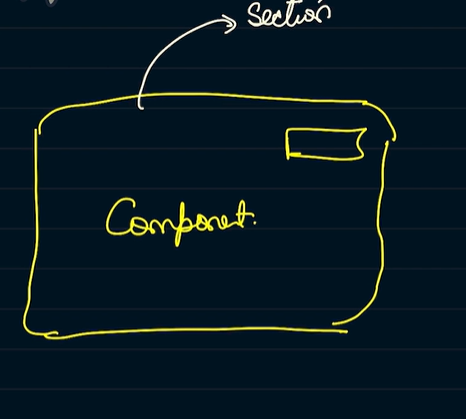 Section
Componet.